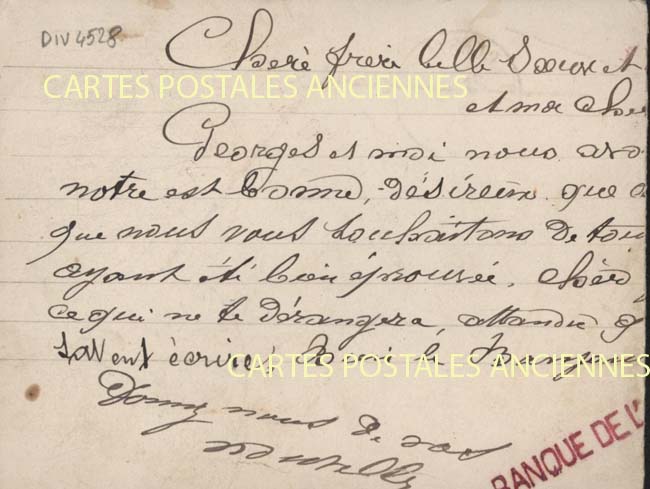 DIV 4528
Cherè frère belle Soeur et
CARTES POSTALES ANCIENNES
et ma chè
Georges et moi nous avo
notre est bonne, désireux que
que nous vous souhaitons de tou
ayant été bien éprouvée. chèr
ce qui ne te dérangera, attendu q
savent écrire,
CARTES POSTALES ANCIENNES
Donnez nous de vos
nouvelles
BANQUE DE L'